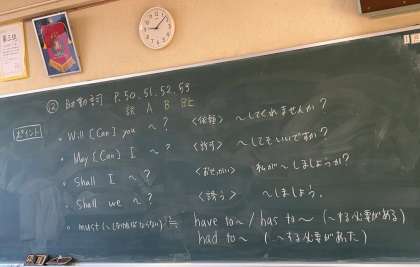 ② 助動詞 P.50.51.52.53
訳 A B
ポイント
・Will [Can] you ~? <依頼> ~してくれませんか?
・May [Can] I ~? <許可> ~してもいいですか?
・Shall I ~? 私が~しましょうか?
・Shall we ~? <誘う> ~しましょう。
・must (~しなければならない) ≒ have to~ / has to~ (~する必要がある)
had to~ (~する必要があった)